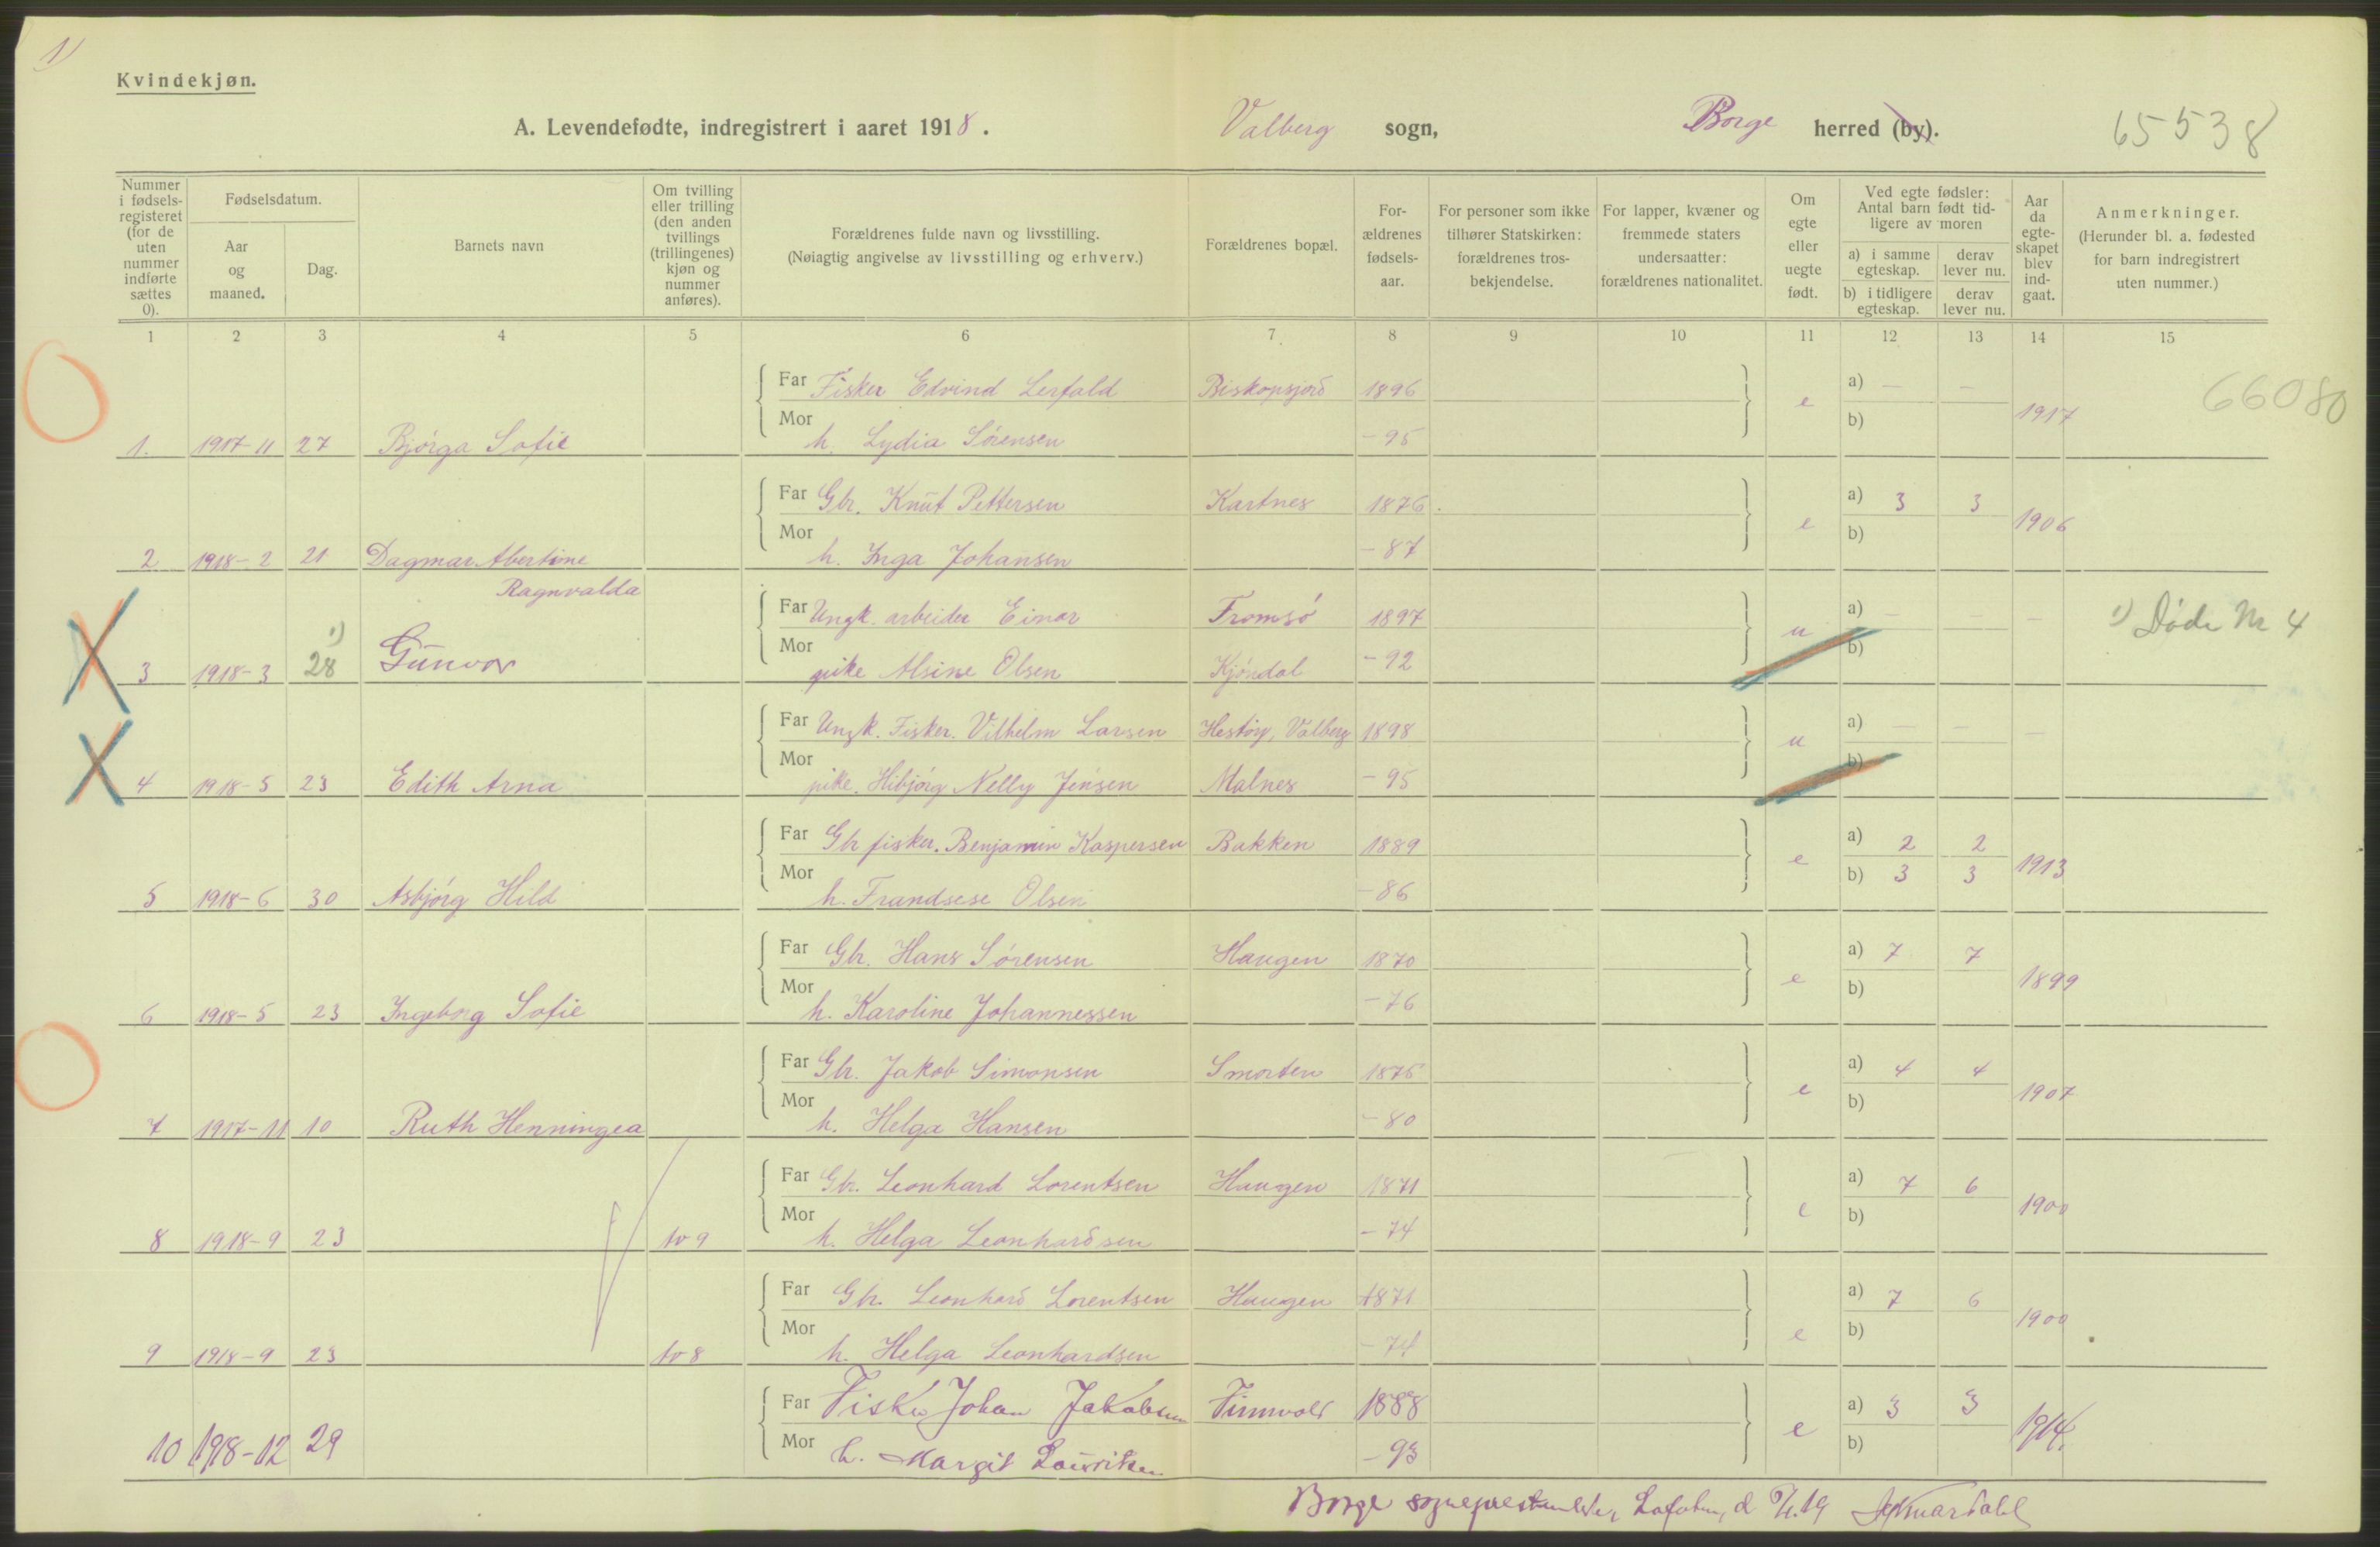 1)
Kvindekjøn.
A. Levendefødte, indregistrert i aaret 1918. Valberg sogn, Borge herred (by). 65538
Nummer i fødsels-registeret (for de uten nummer indførte sættes 0).
Fødselsdatum.
Aar og maaned.
Dag.
Barnets navn
Om tvilling eller trilling (den anden tvillings (trillingenes) kjøn og nummer anføres).
Forældrenes fulde navn og livsstilling.
(Nøiagtig angivelse av livsstilling og erhverv.)
Forældrenes bopæl.
For-ældrenes fødsels-aar.
For personer som ikke tilhører Statskirken: forældrenes tros-bekjendelse.
For lapper, kvæner og fremmede staters undersaatter: forældrenes nationalitet.
Om egte eller uegte født.
Ved egte fødsler: Antal barn født tid-ligere av moren
a) i samme egteskap. derav lever nu.
b) i tidligere egteskap. derav lever nu.
Aar da egte-skapet blev ind-gaat.
Anmerkninger.
(Herunder bl. a. fødested for barn indregistrert uten nummer.)
1 2 3 4 5 6 7 8 9 10 11 12 13 14 15
Far Fisker Edvind Lerfald Biskopsjord 1896 e a) — — 1917 66080
1. 1917-11 27 Bjørga Sofie Mor h. Lydia Sørensen -95 b)
Far Gbr. Knut Pettersen Kartnes 1876 e a) 3 3 1906
2 1918-2 21 Dagmar Abertine Mor h. Inga Johansen -87 b)
Ragnvalda
Far Ungk. arbeider Einar Tromsø 1897 u a) — — — 1) Døde Nr 4
3 1918-3 1) 28 Gunvor Mor pike Alsine Olsen Kjøndal -92 b)
Far Ungk. Fisker. Vilhelm Larsen Valberg 1898 u a) — — —
4 1918-5 23 Edith Arna Mor pike. Hibjørg Nelly Jensen Malnes -95 b)
Far Gbr fisker. Benjamin Kaspersen Bakken 1889 e a) 2 2 1913
5 1918-6 30 Asbjørg Hild Mor h. Frandsese Olsen -86 b) 3 3
Far Gbr. Hans Sørensen Haugen 1870 e a) 7 7 1899
6 1918-5 23 Ingeborg Sofie Mor h. Karoline Johannessen -76 b)
Far Gbr. Jakob Simonsen Smorten 1875 e a) 4 4 1907
7 1917-11 10 Ruth Henningea Mor h. Helga Hansen -80 b)
Far Gbr. Leonhard Lorentsen Haugen 1871 e a) 7 6 1900
8 1918-9 23 No 9 Mor h. Helga Leonhardsen -74 b)
Far Gbr. Leonhard Lorentsen Haugen 1871 e a) 7 6 1900
9 1918-9 23 No 8 Mor h. Helga Leonhardsen -74 b)
Far Fisker Johan Jakobsen 1888 e a) 3 3 1914.
10 1918-12 29 Mor h. Margit Lauritsen -93 b)
Borge sogneprestembede, Lofoten, d